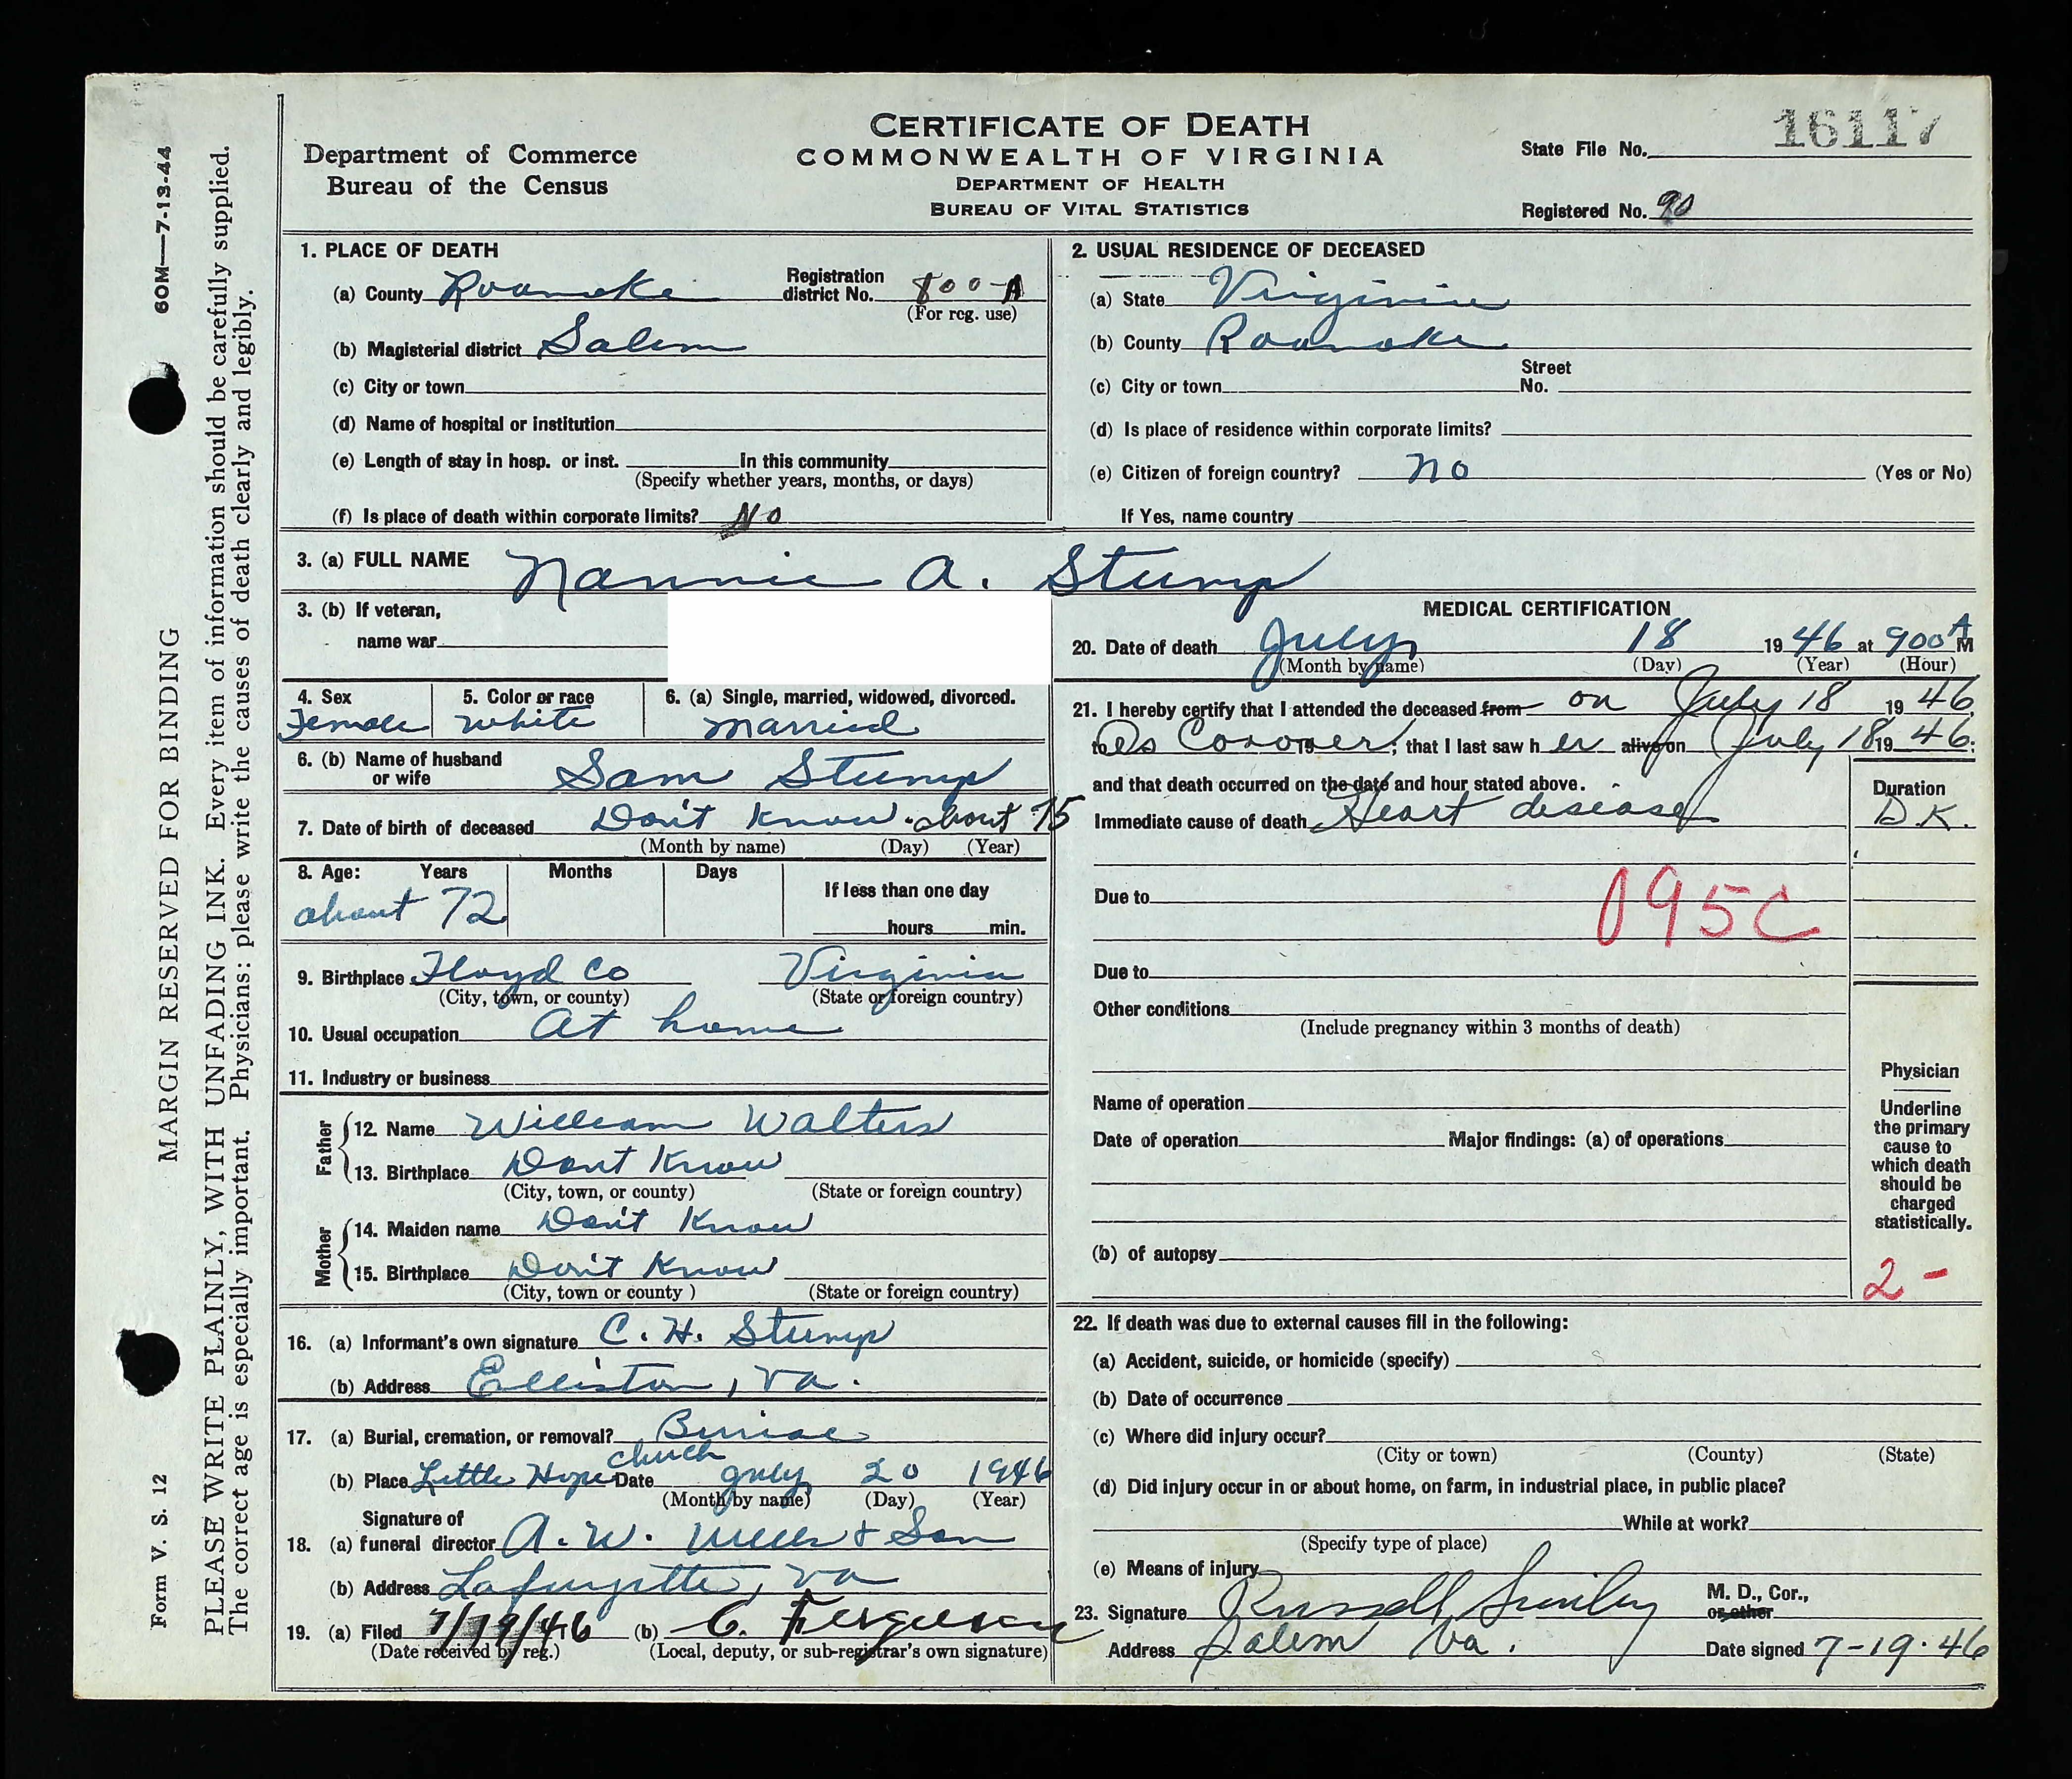 60M—7-13-44
MARGIN RESERVED FOR BINDING
PLEASE WRITE PLAINLY, WITH UNFADING INK. Every item of information should be carefully supplied.
The correct age is especially important. Physicians: please write the causes of death clearly and legibly.
Form V. S. 12
CERTIFICATE OF DEATH
COMMONWEALTH OF VIRGINIA
DEPARTMENT OF HEALTH
BUREAU OF VITAL STATISTICS
Department of Commerce
Bureau of the Census
State File No. 16117
Registered No. 90
1. PLACE OF DEATH
(a) County Roanoke Registration district No. 800-A
(For reg. use)
(b) Magisterial district Salem
(c) City or town
(d) Name of hospital or institution
(e) Length of stay in hosp. or inst. In this community
(Specify whether years, months, or days)
(f) Is place of death within corporate limits? No
2. USUAL RESIDENCE OF DECEASED
(a) State Virginia
(b) County Roanoke
(c) City or town Street No.
(d) Is place of residence within corporate limits?
(e) Citizen of foreign country? no (Yes or No)
If Yes, name country
3. (a) FULL NAME Nannie A. Stump
3. (b) If veteran,
name war
4. Sex 5. Color or race 6. (a) Single, married, widowed, divorced.
Female White Married
6. (b) Name of husband or wife Sam Stump
7. Date of birth of deceased Don't Know. about 75
(Month by name) (Day) (Year)
8. Age: Years Months Days If less than one day
about 72 hours min.
9. Birthplace Floyd Co Virginia
(City, town, or county) (State or foreign country)
10. Usual occupation At home
11. Industry or business
Father
12. Name William Walters
13. Birthplace Dont Know
(City, town, or county) (State or foreign country)
Mother
14. Maiden name Don't Know
15. Birthplace Don't Know
(City, town or county ) (State or foreign country)
16. (a) Informant's own signature C. H. Stump
(b) Address Elliston, Va.
17. (a) Burial, cremation, or removal? Burial
(b) Place Little Hope church Date July 20 1946
(Month by name) (Day) (Year)
Signature of
18. (a) funeral director A. W. & Son
(b) Address Lafayette, Va
19. (a) Filed 7/19/46 (b) C. Ferguson
(Date received by reg.) (Local, deputy, or sub-registrar's own signature)
MEDICAL CERTIFICATION
20. Date of death July 18 1946 at 900 A M
(Month by name) (Day) (Year) (Hour)
21. I hereby certify that I attended the deceased from on July 18 1946
to As Coroner, that I last saw her alive on July 18 1946;
and that death occurred on the date and hour stated above.
Duration
Immediate cause of death Heart disease D.K.
Due to
095C
Due to
Other conditions
(Include pregnancy within 3 months of death)
Name of operation
Date of operation Major findings: (a) of operations
(b) of autopsy
Physician
Underline
the primary
cause to
which death
should be
charged
statistically.
2 -
22. If death was due to external causes fill in the following:
(a) Accident, suicide, or homicide (specify)
(b) Date of occurrence
(c) Where did injury occur?
(City or town) (County) (State)
(d) Did injury occur in or about home, on farm, in industrial place, in public place?
While at work?
(Specify type of place)
(e) Means of injury
23. Signature Russell Smiley M. D., Cor., or other
Address Salem Va. Date signed 7-19-46